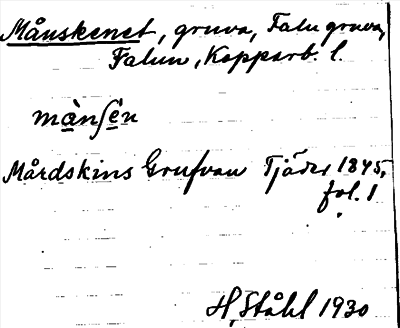 Månskenet, gruva, Falu gruva,
Falun, Kopparb. l.
mànʃén
Mårdskins Grufvan Tjäder 1845,
fol. 1
H. Ståhl 1930